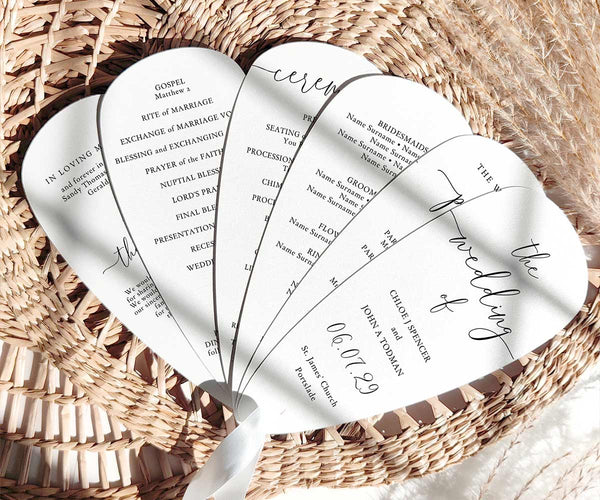 IN LOVING M
and forever in
Sandy Thomas
Gerald
th
We wou
for sharing
We woul
our since
fan
for
GOSPEL
Matthew 2
RITE OF MARRIAGE
EXCHANGE OF MARRIAGE VO
BLESSING and EXCHANGING
PRAYER of the FAITH
NUPTIAL BLESS
LORD'S PRA
FINAL BLE
PRESENTATION
RECES
WEDD
DIN
foll
cerem
PRE
SEATING
PROCESSION
T
CHIM
PROC
BRIDESMAIDS
Name Surname • Name
Name Surname • Name
Name Surname •
GROOM
Name Surname
Name Surname
FLOW
Name Surname
RIN
Name
THE W
P
PAR
M
PAR
M
the
wedding
of
CHLOE J SPENCER
and
JOHN A TODMAN
06.07.29
St. James' Church
Portslade